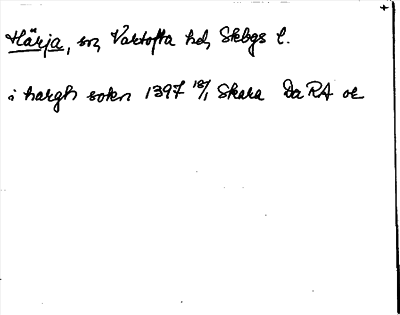 Härja, sn, Vartofta hd, Skbgs l.
i hargh sokn 1397 18/1 Skara DaRA or